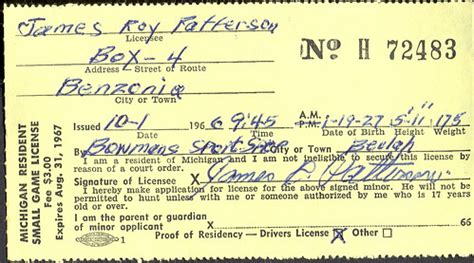 James Roy Patterson
Licensee
No H 72483
Box-4
Address Street of Route
Benzonia
City or Town
Issued 10-1 1966 9:45 A.M. P.M. 1-19-27 5-11" 175
Date Date of Birth Height Weight
By Bowmans Sport Beulah
City or Town
I am a resident of Michigan and I am not ineligible to secure this license by
reason of a court order.
Signature of Licensee James
I hereby make application for license for the above signed minor. He will not be
permitted to hunt unless with me or someone authorized by me who is 17 years
old or over.
I am the parent or guardian
of minor applicant
1 Proof of Residency - Drivers License X Other
MICHIGAN RESIDENT
SMALL GAME LICENSE
Fee $3.00
Expires Aug. 31, 1967